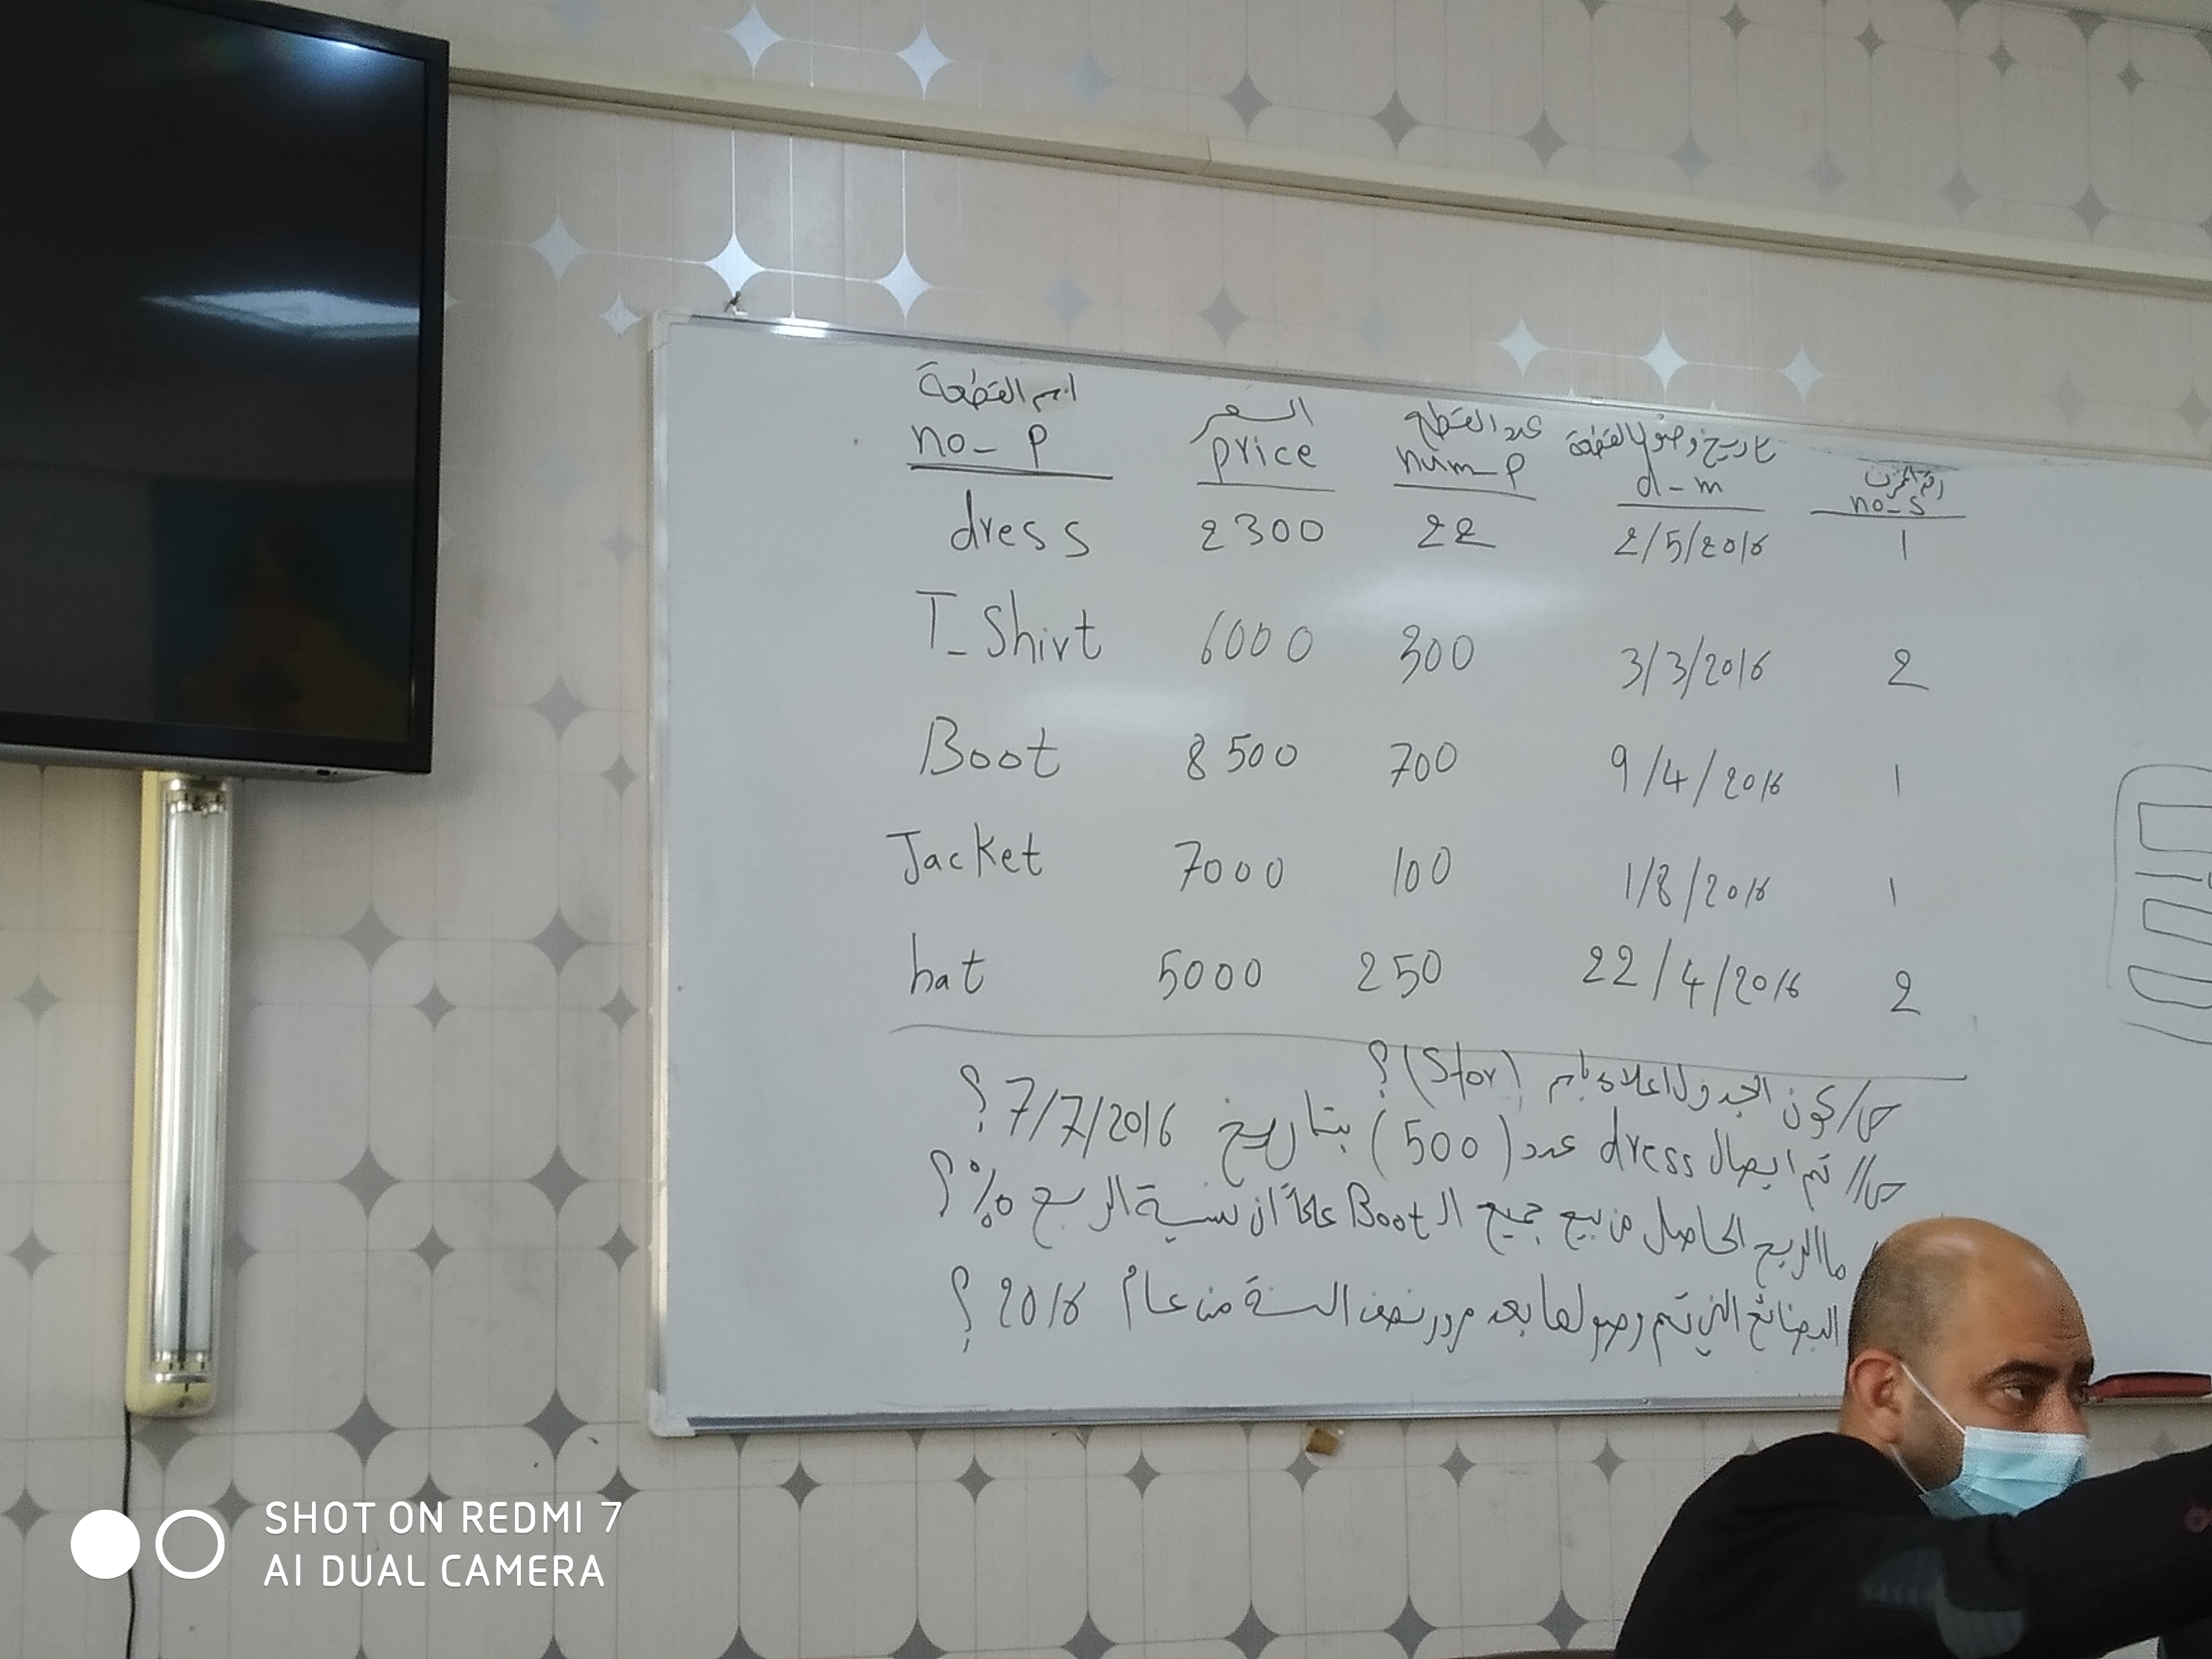 اسم القطعة السعر عدد القطع تاريخ وصول القطعة رقم المخزن
no_p price num_p d-m no_s
dress 2300 22 2/5/2016 1
T_Shirt 6000 300 3/3/2016 2
Boot 8500 700 9/4/2016 1
Jacket 7000 100 1/8/2016 1
hat 5000 250 22/4/2016 2
س/ كون الجدول اعلاه باسم (Stor)؟
س// تم ايصال dress عدد (500) بتاريخ 7/7/2016 ؟
ما الربح الحاصل من بيع جميع الـ Boot علماً ان نسبة الربح %؟
البضائع التي تم وصولها بعد مرور نصف السنة من عام 2016 ؟
SHOT ON REDMI 7
AI DUAL CAMERA